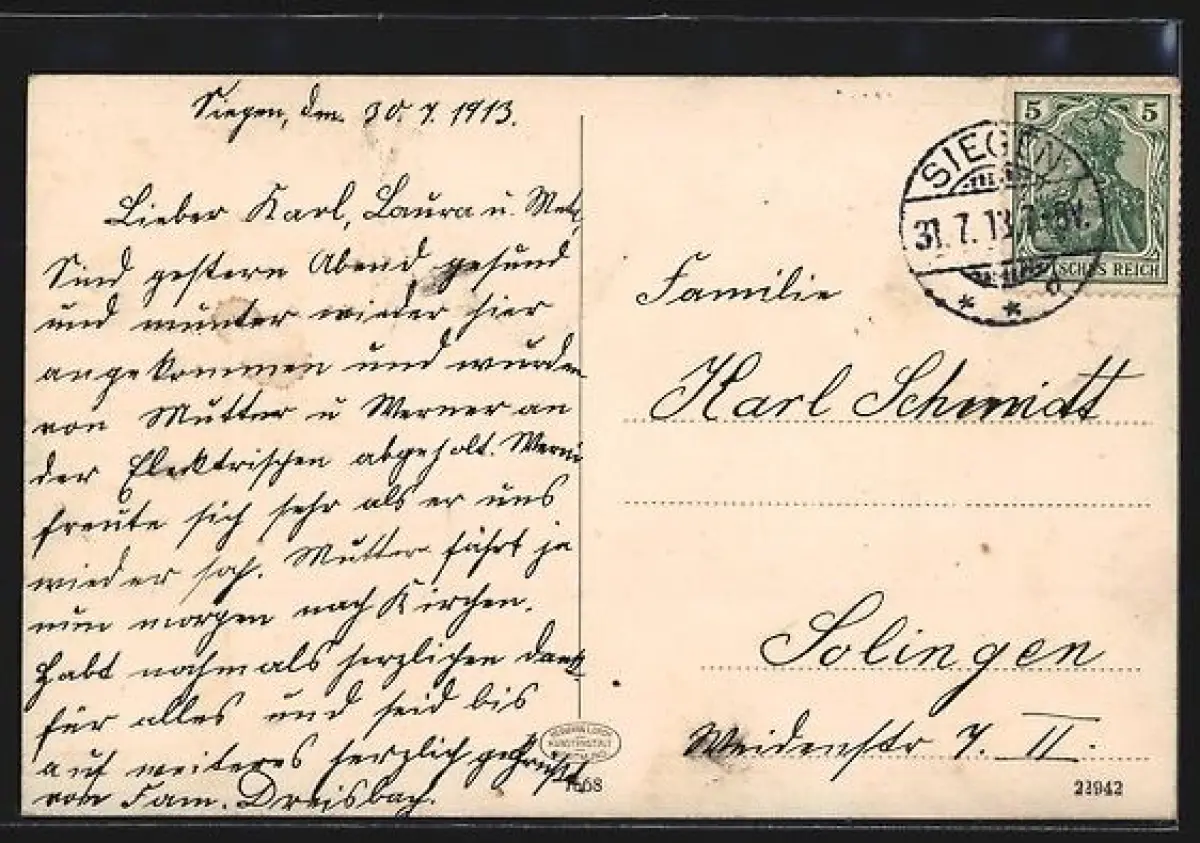 Siegen, den 30.7.1913.
Lieber Karl, Laura u.
Sind gestern Abend gesund
und munter wieder hier
angekommen und wurden
von Mutter u Werner an
der Elektrischen abgeholt.
freute sich sehr als er uns
wieder sah. Mutter fährt ja
nun morgen nach Kirchen.
Habt nochmals herzlichen Dank
für alles und seid bis
auf weiteres herzlich gegrüßt
von Fam. Dreisbach.
7668
5 5
DEUTSCHES REICH
SIEGEN
31.7.13.7-8V.
* d *
Familie
Karl Schmidt
Solingen
Weidenstr 7. II.
22942